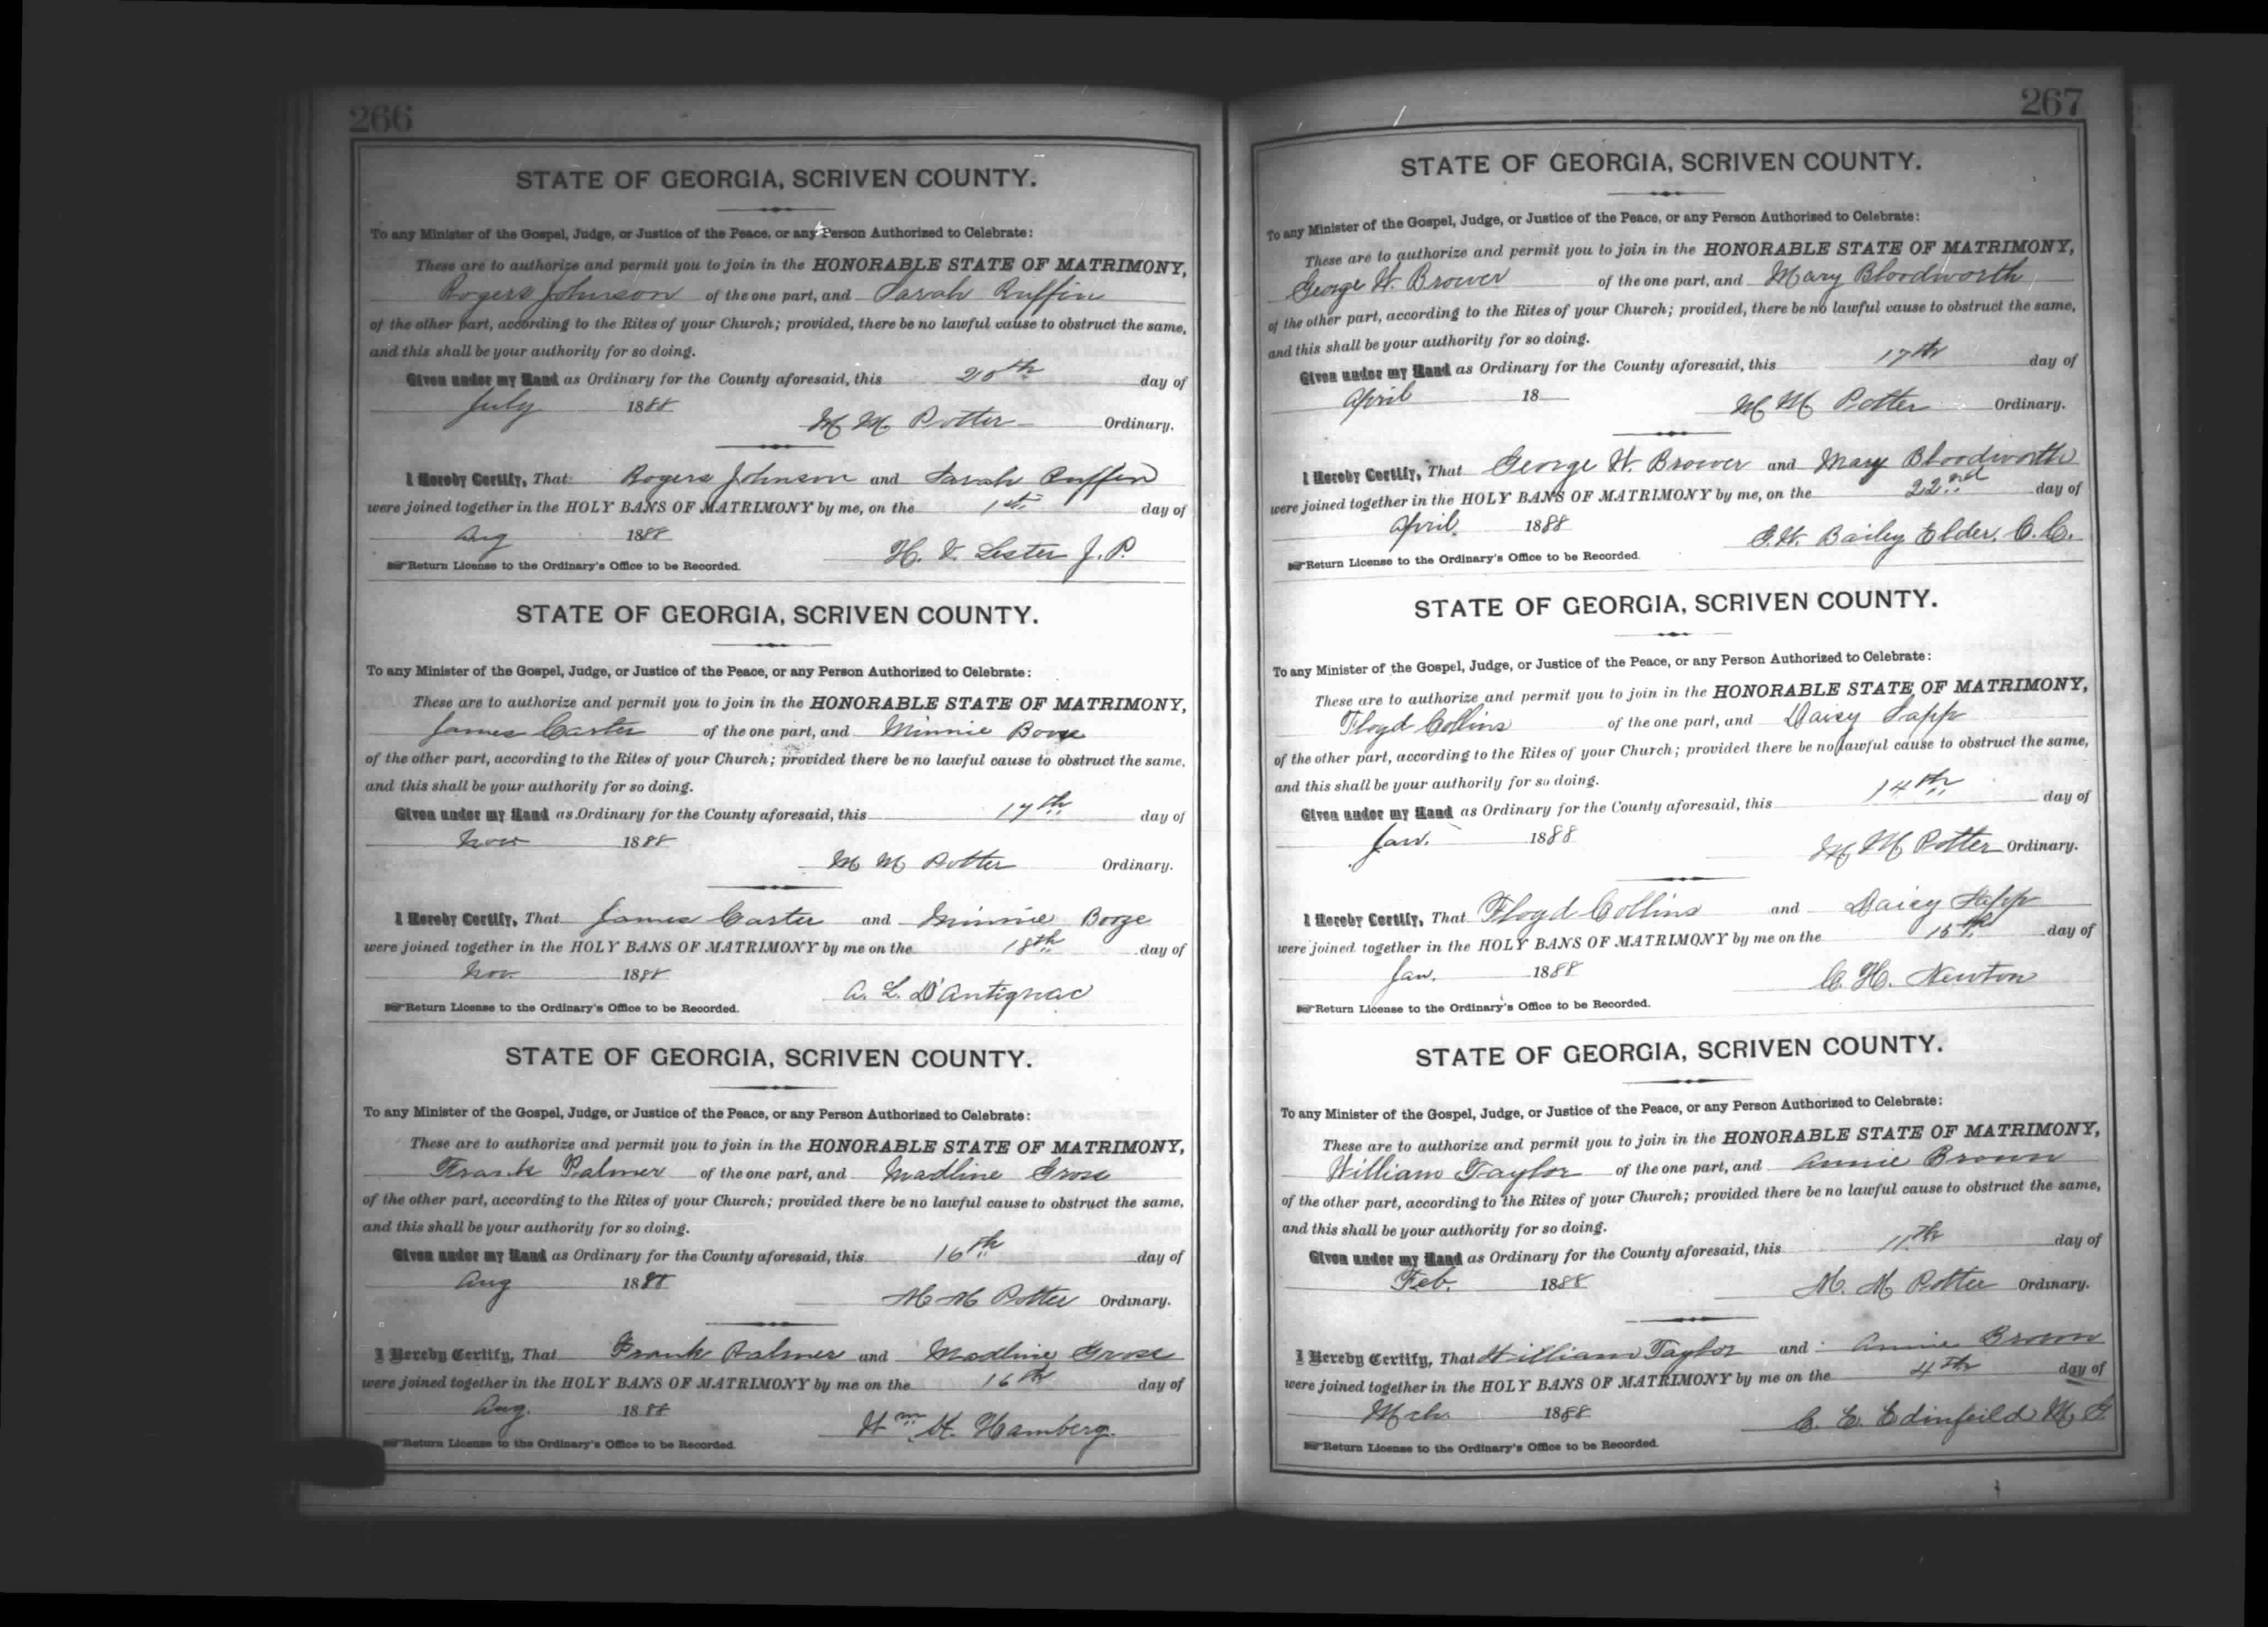 266
STATE OF GEORGIA, SCRIVEN COUNTY.
To any Minister of the Gospel, Judge, or Justice of the Peace, or any Person Authorized to Celebrate:
These are to authorize and permit you to join in the HONORABLE STATE OF MATRIMONY,
Rogers Johnson of the one part, and Sarah Ruffin
of the other part, according to the Rites of your Church; provided, there be no lawful cause to obstruct the same,
and this shall be your authority for so doing.
Given under my Hand as Ordinary for the County aforesaid, this 20th day of
July 1888
M M Potter Ordinary.
I Hereby Certify, That Rogers Johnson and Sarah Ruffin
were joined together in the HOLY BANS OF MATRIMONY by me, on the 1st day of
Aug 1888
H. V. Lester J. P.
Return License to the Ordinary's Office to be Recorded.
STATE OF GEORGIA, SCRIVEN COUNTY.
To any Minister of the Gospel, Judge, or Justice of the Peace, or any Person Authorized to Celebrate:
These are to authorize and permit you to join in the HONORABLE STATE OF MATRIMONY,
James Carter of the one part, and Minnie Booze
of the other part, according to the Rites of your Church; provided there be no lawful cause to obstruct the same,
and this shall be your authority for so doing.
Given under my Hand as Ordinary for the County aforesaid, this 17th day of
Nov 1888
M M Potter Ordinary.
I Hereby Certify, That James Carter and Minnie Booze
were joined together in the HOLY BANS OF MATRIMONY by me on the 18th day of
Nov. 1888
A. L. D'Antignac
Return License to the Ordinary's Office to be Recorded.
STATE OF GEORGIA, SCRIVEN COUNTY.
To any Minister of the Gospel, Judge, or Justice of the Peace, or any Person Authorized to Celebrate:
These are to authorize and permit you to join in the HONORABLE STATE OF MATRIMONY,
Frank Palmer of the one part, and Madline Grose
of the other part, according to the Rites of your Church; provided there be no lawful cause to obstruct the same,
and this shall be your authority for so doing.
Given under my Hand as Ordinary for the County aforesaid, this 16th day of
Aug 1888
M M Potter Ordinary.
I Hereby Certify, That Frank Palmer and Madline Grose
were joined together in the HOLY BANS OF MATRIMONY by me on the 16th day of
Aug. 1888
Wm H. Hamberg.
Return License to the Ordinary's Office to be Recorded.
267
STATE OF GEORGIA, SCRIVEN COUNTY.
To any Minister of the Gospel, Judge, or Justice of the Peace, or any Person Authorized to Celebrate:
These are to authorize and permit you to join in the HONORABLE STATE OF MATRIMONY,
George W. Brower of the one part, and Mary Bloodworth
of the other part, according to the Rites of your Church; provided, there be no lawful cause to obstruct the same,
and this shall be your authority for so doing.
Given under my Hand as Ordinary for the County aforesaid, this 17th day of
April 18
M M Potter Ordinary.
I Hereby Certify, That George W. Brower and Mary Bloodworth
were joined together in the HOLY BANS OF MATRIMONY by me, on the 22nd day of
April. 1888
Bailey Elder, C. C.
Return License to the Ordinary's Office to be Recorded.
STATE OF GEORGIA, SCRIVEN COUNTY.
To any Minister of the Gospel, Judge, or Justice of the Peace, or any Person Authorized to Celebrate:
These are to authorize and permit you to join in the HONORABLE STATE OF MATRIMONY,
Floyd Collins of the one part, and Daisy Sapp
of the other part, according to the Rites of your Church; provided there be no lawful cause to obstruct the same,
and this shall be your authority for so doing.
Given under my Hand as Ordinary for the County aforesaid, this 14th day of
Jan. 1888
M M Potter Ordinary.
I Hereby Certify, That Floyd Collins and Daisy Sapp
were joined together in the HOLY BANS OF MATRIMONY by me on the 15th day of
Jan. 1888
C. H. Newton
Return License to the Ordinary's Office to be Recorded.
STATE OF GEORGIA, SCRIVEN COUNTY.
To any Minister of the Gospel, Judge, or Justice of the Peace, or any Person Authorized to Celebrate:
These are to authorize and permit you to join in the HONORABLE STATE OF MATRIMONY,
William Taylor of the one part, and Annie Brown
of the other part, according to the Rites of your Church; provided there be no lawful cause to obstruct the same,
and this shall be your authority for so doing.
Given under my Hand as Ordinary for the County aforesaid, this 11th day of
Feb. 1888
M. M. Potter Ordinary.
I Hereby Certify, That William Taylor and Annie Brown
were joined together in the HOLY BANS OF MATRIMONY by me on the 4th day of
Mch. 1888
C. E. Edinfeild M. G.
Return License to the Ordinary's Office to be Recorded.